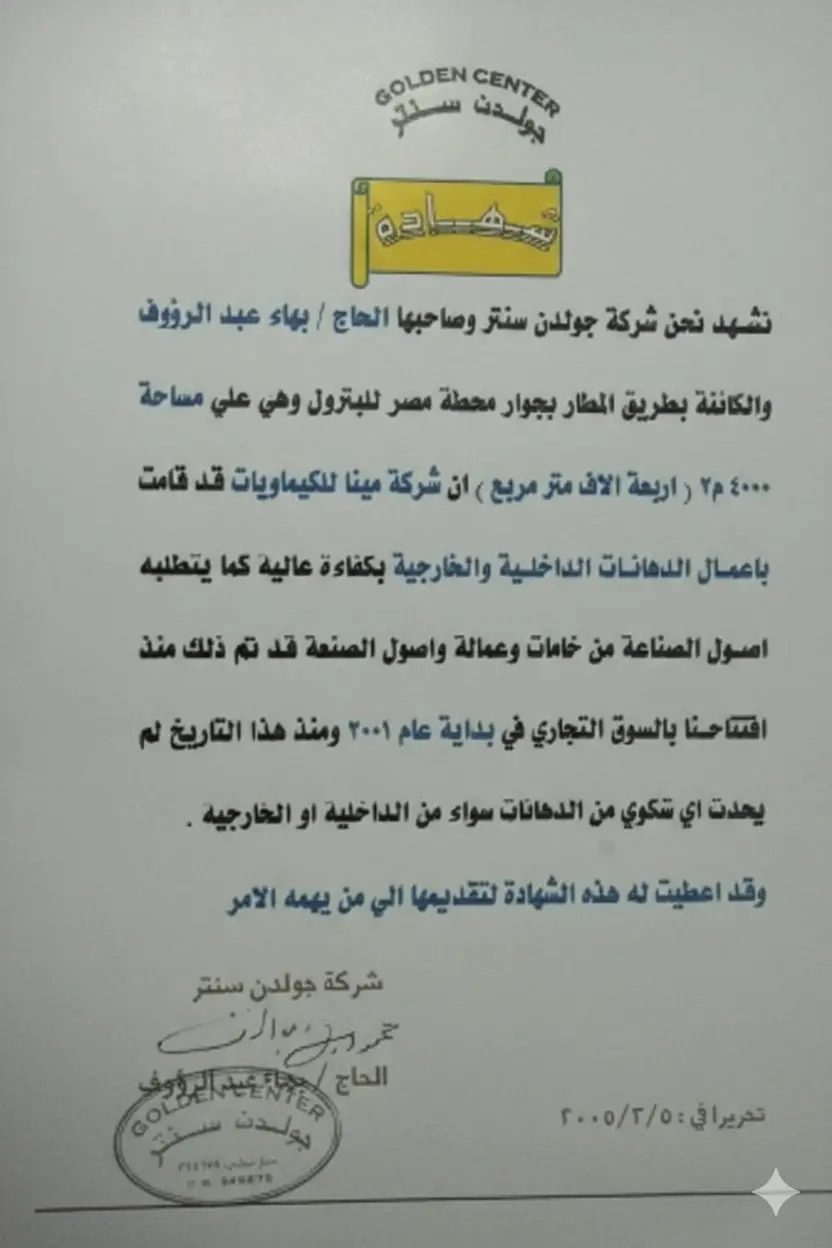 GOLDEN CENTER
جولدن سنتر
شهادة
نشهد نحن شركة جولدن سنتر وصاحبها الحاج / بهاء عبد الرؤوف
والكائنة بطريق المطار بجوار محطة مصر للبترول وهي علي مساحة
٤٠٠٠ م٢ ( اربعة الاف متر مربع ) ان شركة مينا للكيماويات قد قامت
باعمال الدهانات الداخلية والخارجية بكفاءة عالية كما يتطلبه
اصول الصناعة من خامات وعمالة واصول الصنعة قد تم ذلك منذ
افتتاحنا بالسوق التجاري في بداية عام ٢٠٠١ ومنذ هذا التاريخ لم
يحدت اي شكوي من الدهانات سواء من الداخلية او الخارجيه .
وقد اعطيت له هذه الشهادة لتقديمها الي من يهمه الامر
شركة جولدن سنتر
الحاج / بهاء عبد الرؤوف
تحريرا في : ٢٠٠٥/٢/٥
GOLDEN CENTER
جولدن سنتر